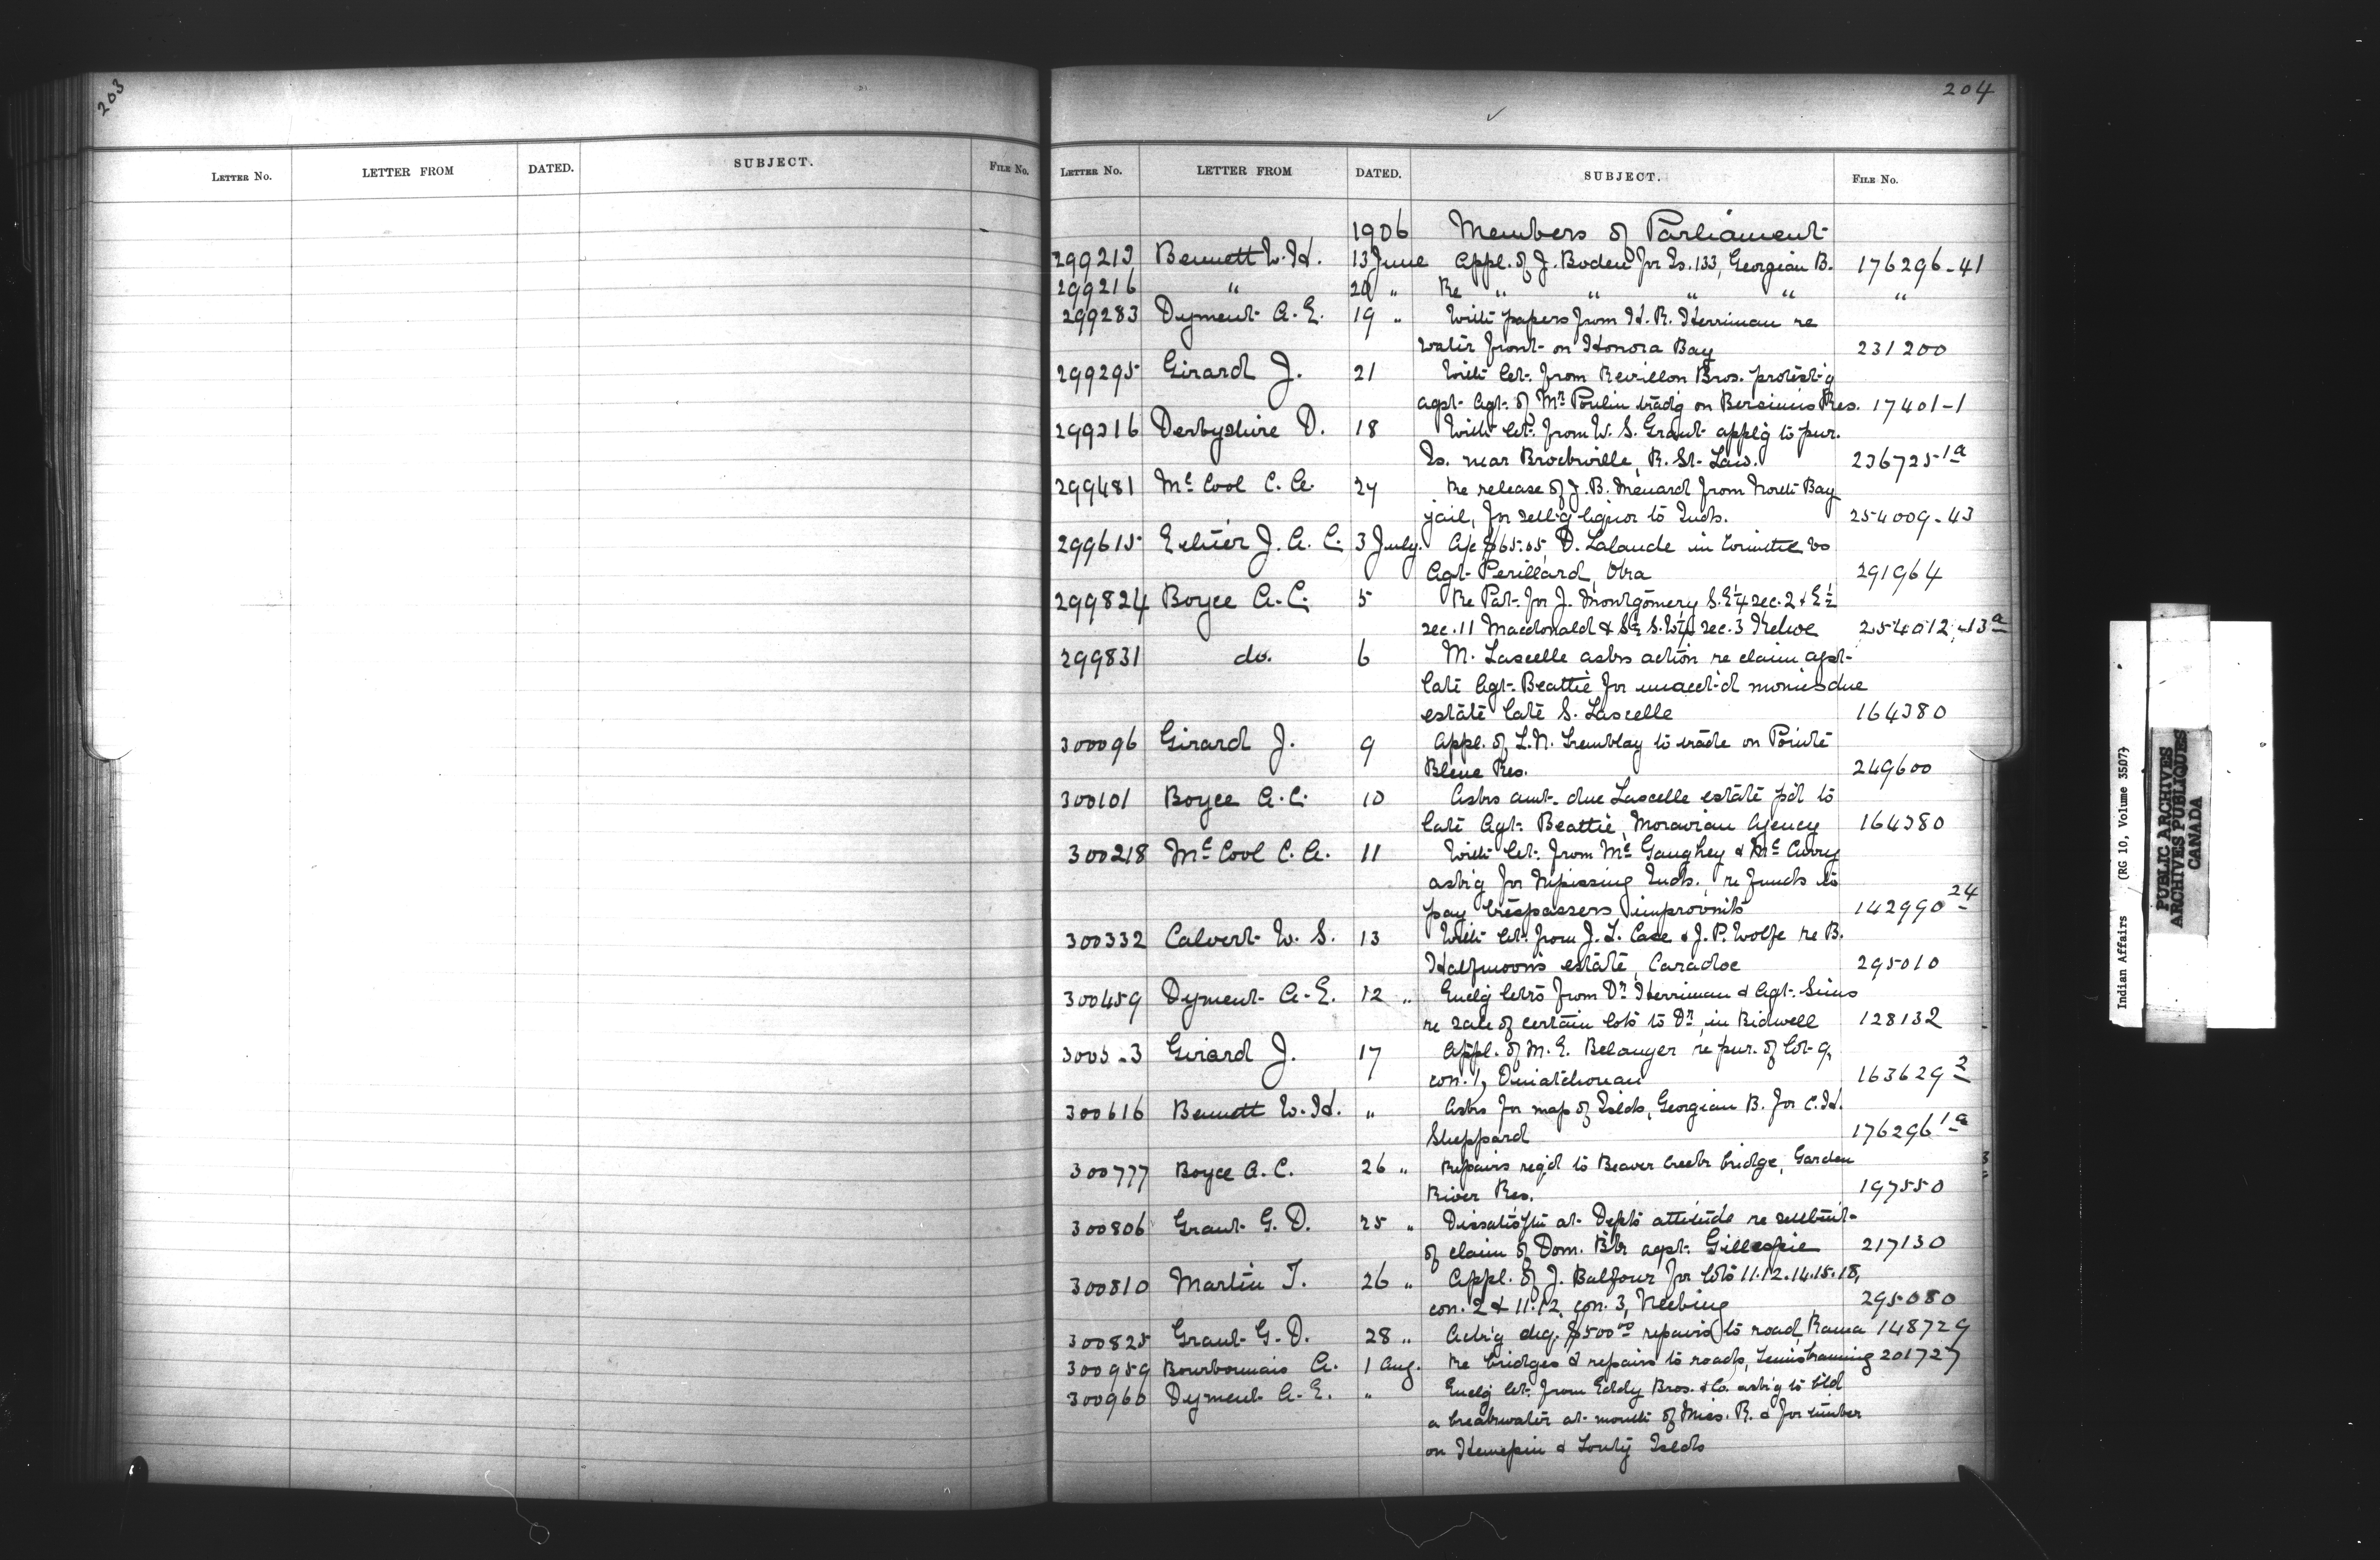 203
204
LETTER No. LETTER FROM DATED. SUBJECT. FILE No.
LETTER No. LETTER FROM DATED. SUBJECT. FILE No.
1906 Members of Parliament
299213 Bennett W. H. 13 June Appl. of J. Boden for Is. 133, Georgian B. 176296-41
299216 " 20 " Re " " " " "
299283 Dyment A. E. 19 " With papers from H. R. Herriman re
water front on Honora Bay 231200
299295 Girard J. 21 With let. from Revillon Bros. protest'g
agst. Agt. of Mr Poulin trad'g on Bersimis Res. 17401-1
299316 Derbyshire D. 18 With let. from W. S. Grant appl'g to pur.
Is. near Brockville, R. St. Law. 236725-1a
299481 McCool C. A. 27 Re release of J. B. Menard from North Bay
jail, for sell'g liquor to Inds. 254009-43
299615 Ethier J. A. C. 3 July A/c $65.05, D. Lalande in vs
Agt. Perillard, Oka 291964
299824 Boyce A. C. 5 Re Pat. for J. Montgomery S.E¼ sec. 2 & E½
sec. 11 Macdonald & S½ S.W¼ sec. 3 Kehoe 254012-13a
299831 do. 6 M. Lascelle asks action re claim agst.
late Agt. Beattie for unacct'd monies due
estate late S. Lascelle 164380
300096 Girard J. 9 Appl. of L. N. Tremblay to trade on Pointe
Bleue Res. 249600
300101 Boyce A. C. 10 Asks amt. due Lascelle estate p'd to
late Agt. Beattie, Moravian Agency 164380
300218 McCool C. A. 11 With let. from McGaughey & McCurry
ask'g for Nipissing Inds., re funds to
pay trespassers improvmts 142990 24
300332 Calvert W. S. 13 With let. from J. L. Case & J. P. Wolfe re B.
Halfmoon's estate, Caradoc 295010
300459 Dyment A. E. 12 " Encl'g lets from Dr Herriman & Agt. Sims
re sale of certain lots to Dr, in Bidwell 128132
3005 3 Girard J. 17 Appl. of M. E. Belanger re pur. of lot 9,
con. 1, Ouiatchouan 163629 2
300616 Bennett W. H. " Asks for map of Islds, Georgian B. for C. H.
Sheppard 176296 1a
300777 Boyce A. C. 26 " Repairs req'd to Beaver Creek bridge, Garden
River Res. 197550
300806 Grant G. D. 25 " at Dept's attitude re settlmt.
of claim of Dom. Bk agst. Gillespie 217130
300810 Martin T. 26 " Appl. of J. Balfour for lots 11.12.14.15.18,
con. 2 & 11.12, con. 3, Neebing 295080
300825 Grant G. D. 28 " $500.00 repairs to road, Rama 148729
300959 Bourbonnais A. 1 Aug. Re bridges & repairs to roads, Temiskaming 201727
300960 Dyment A. E. " Encl'g let. from Eddy Bros. & Co. ask'g to bld
a breakwater at mouth of Miss. R. & for timber
on Henepin & Islds
Indian Affairs (RG 10, Volume 3507)
PUBLIC ARCHIVES
ARCHIVES PUBLIQUES
CANADA